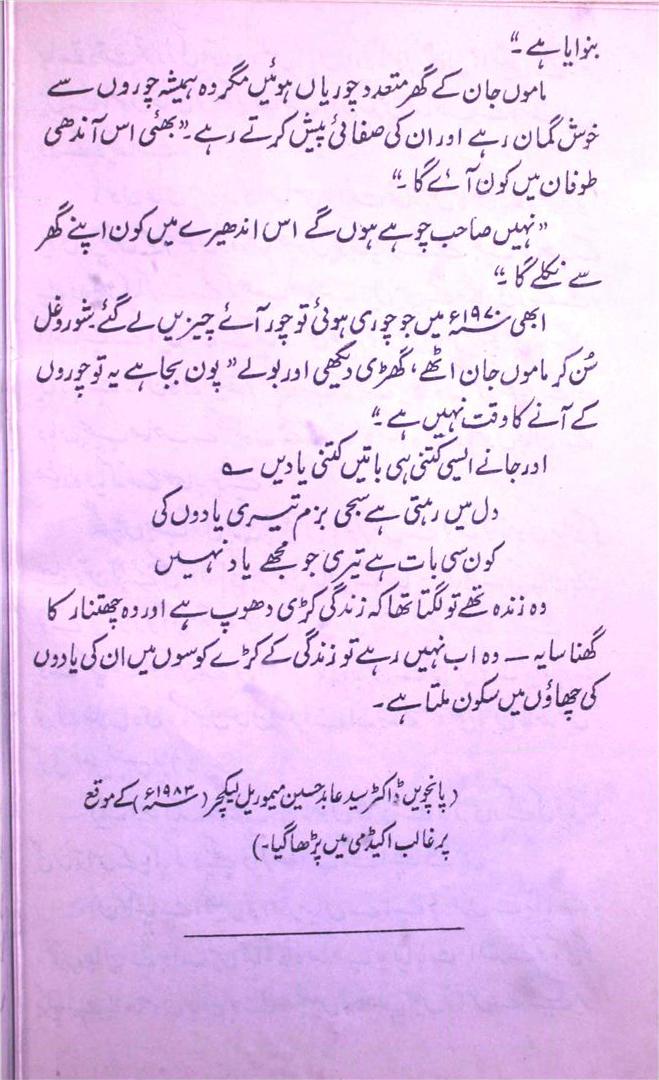 بنوایا ہے۔“
ماموں جان کے گھر متعدد چوریاں ہوئیں مگر وہ ہمیشہ چوروں سے
خوش گمان رہے اور ان کی صفائی پیش کرتے رہے۔ ”بھئی اس آندھی
طوفان میں کون آئے گا۔“
”نہیں صاحب چوہے ہوں گے اس اندھیرے میں کون اپنے گھر
سے نکلے گا۔“
ابھی ۱۹۷۰ء میں جو چوری ہوئی تو چور آئے چیزیں لے گئے شور و غل
سُن کر ماموں جان اٹھے، گھڑی دیکھی اور بولے ”پون بجا ہے یہ تو چوروں
کے آنے کا وقت نہیں ہے۔“
اور جانے ایسی کتنی ہی باتیں کتنی یادیں ؎
دل میں رہتی ہے سجی بزم تیری یادوں کی
کون سی بات ہے تیری جو مجھے یاد نہیں
وہ زندہ تھے تو لگتا تھا کہ زندگی کڑی دھوپ ہے اور وہ چھتنار کا
گھنا سایہ — وہ اب نہیں رہے تو زندگی کے کڑے کوسوں میں ان کی یادوں
کی چھاؤں میں سکون ملتا ہے۔
(پانچویں ڈاکٹر سید عابد حسین میموریل لیکچر (۱۹۸۳ء) کے موقع
پر غالب اکیڈمی میں پڑھا گیا۔)